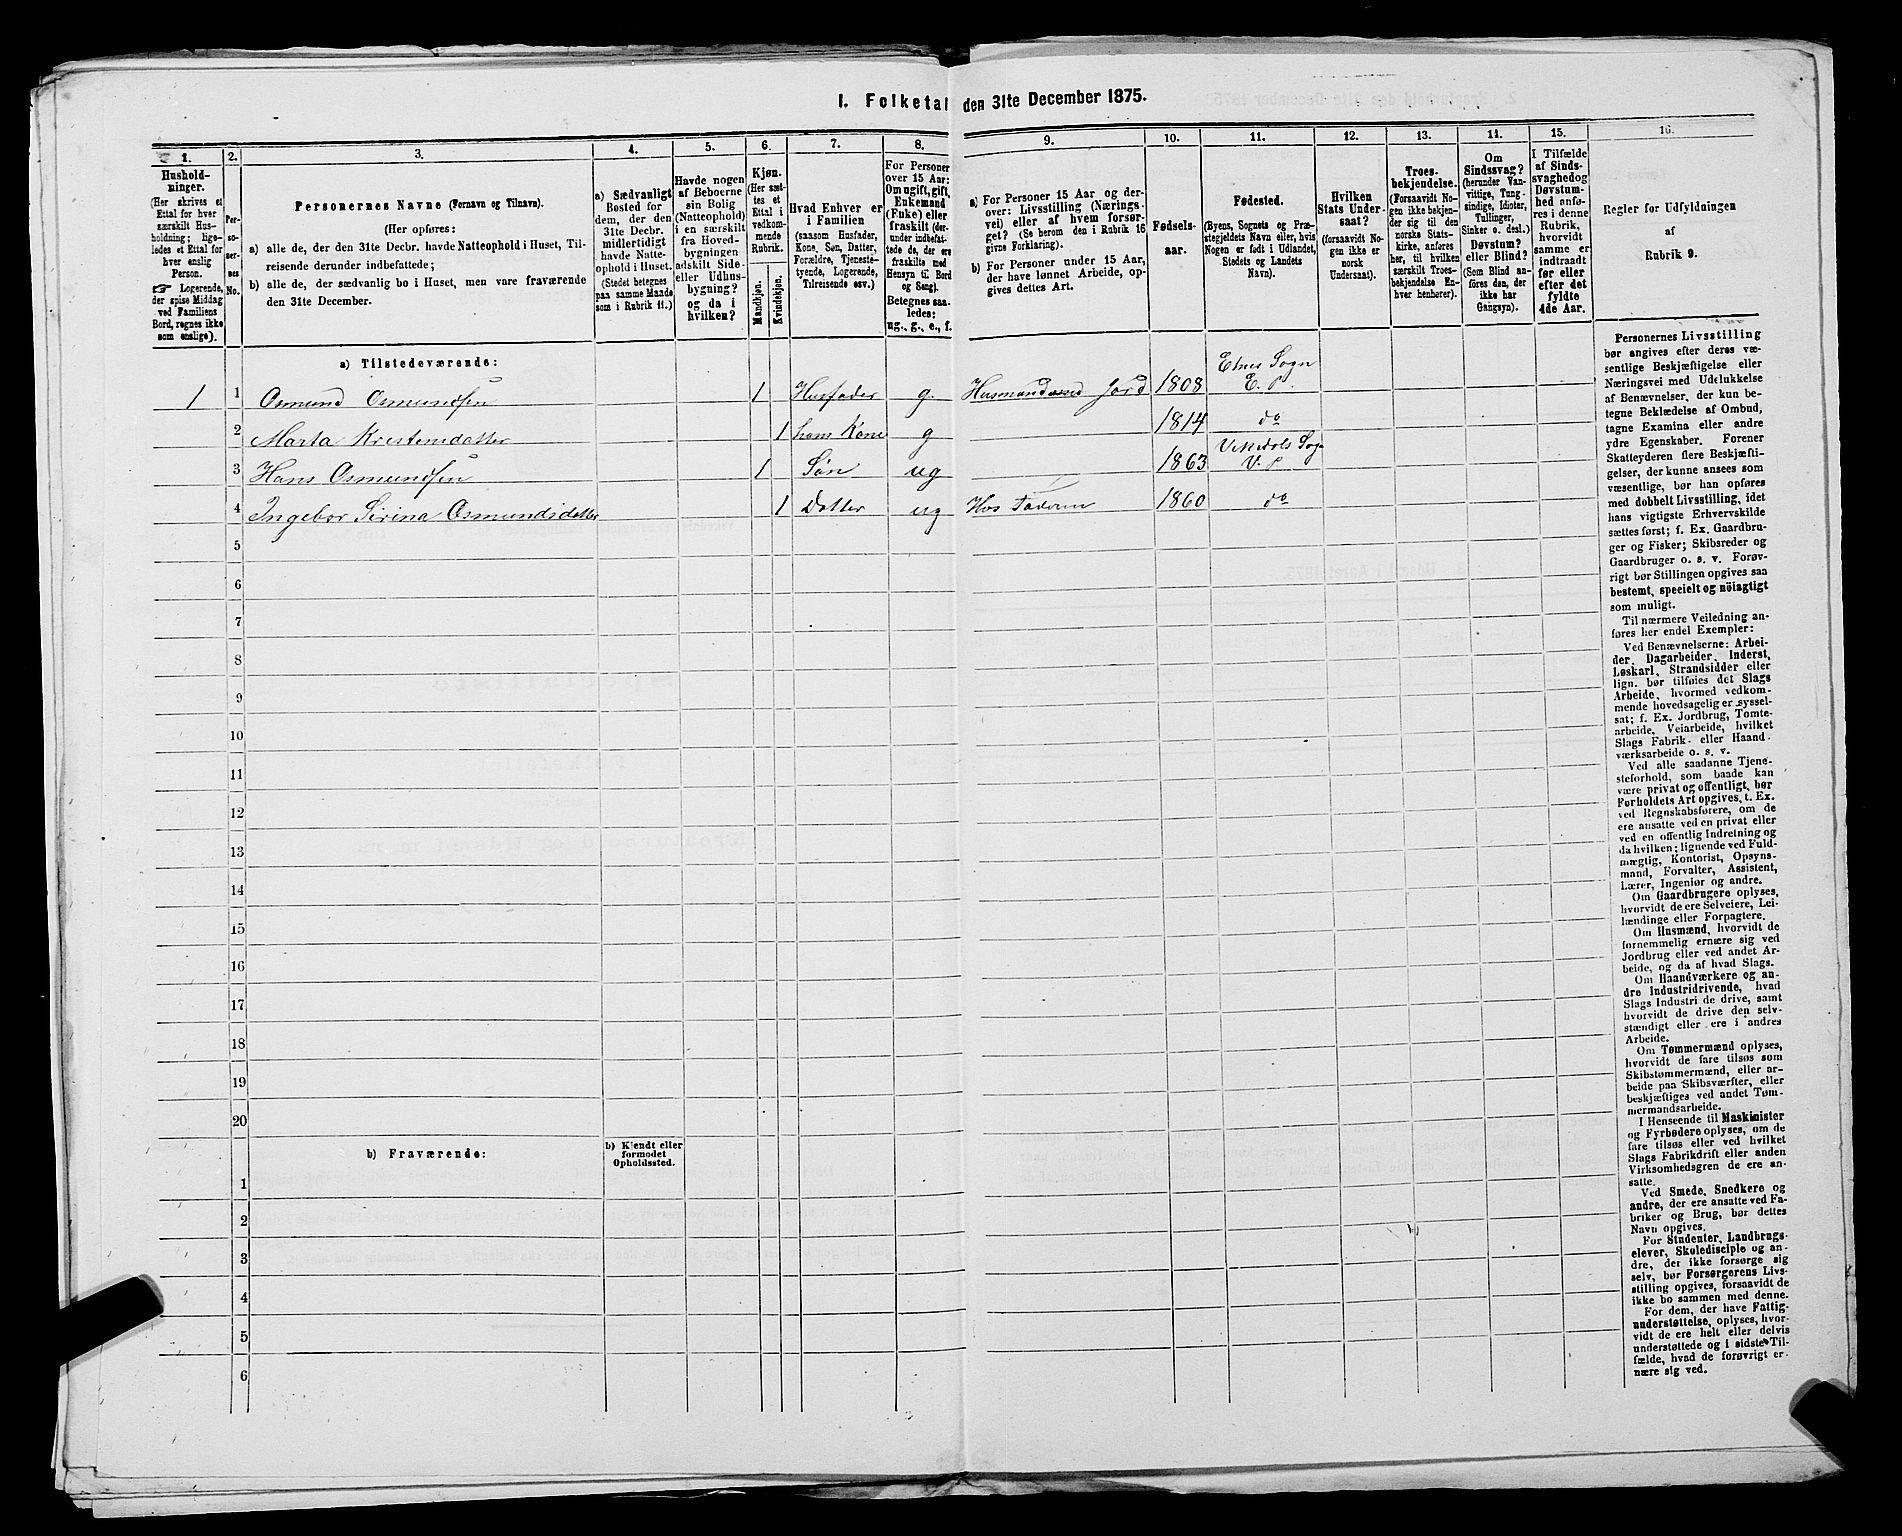 I. Folketal den 31te December 1875.
1. 2. 3. 4. 5. 6. 7. 8. 9. 10. 11. 12. 13. 14. 15. 16.
Hushold-
ninger.
(Her skrives et
Ettal for hver
særskilt Hus-
holdning; lige-
ledes et Ettal for
hver enslig
Person.
☞ Logerende,
der spise Middag
ved Familiens
Bord, regnes ikke
som enslige).
Per-
so-
ner-
nes
No.
Personernes Navne (Fornavn og Tilnavn).
(Her opføres:
a) alle de, der den 31te Decbr. havde Natteophold i Huset, Til-
reisende derunder indbefattede;
b) alle de, der sædvanlig bo i Huset, men vare fraværende
den 31te December.
a) Sædvanligt
Bosted for
dem, der den
31te Decbr.
midlertidigt
havde Natte-
ophold i Huset.
(Stedet betegnes
paa samme Maade
som i Rubrik 11.)
Havde nogen
af Beboerne
sin Bolig
(Natteophold)
i en særskilt
fra Hoved-
bygningen
adskilt Side-
eller Udhus-
bygning?
og da i
hvilken?
Kjøn.
(Her sæt-
tes et
Ettal i
vedkom-
mende
Rubrik.
Mandkjøn.
Kvindekjøn.
Hvad Enhver er
i Familien
(saasom Husfader,
Kone, Søn, Datter,
Forældre, Tjeneste-
tyende, Logerende,
Tilreisende osv.)
For Personer
over 15 Aar:
Om ugift, gift,
Enkemand
(Enke) eller
fraskilt (der-
under indbefat-
tede de, der ere
fraskilte med
Hensyn til Bord
og Seng).
Betegnes saa-
ledes:
ug., g., e., f.
a) For Personer 15 Aar og der-
over: Livsstilling (Nærings-
vei) eller af hvem forsør-
get? (Se herom den i Rubrik 16
givne Forklaring).
b) For Personer under 15 Aar,
der have lønnet Arbeide, op-
gives dettes Art.
Fødsels-
aar.
Fødested.
(Byens, Sognets og Præ-
stegjeldets Navn eller, hvis
Nogen er født i Udlandet,
Stedets og Landets
Navn).
Hvilken
Stats Under-
saat?
(forsaavidt No-
gen ikke er
norsk
Undersaat).
Troes-
bekjendelse.
(Forsaavidt No-
gen ikke bekjen-
der sig til den
norske Stats-
kirke, anføres
her, til hvilken
særskilt Troes-
bekjendelse En-
hver henhører).
Om
Sindssvag?
(herunder Van-
vittige, Tung-
sindige, Idioter,
Tullinger,
Sinker o. desl.)
Døvstum?
eller Blind?
(Som Blind an-
føres den, der
ikke har
Gangsyn).
I Tilfælde
af Sinds-
svaghed og
Døvstum-
hed anfø-
res i denne
Rubrik,
hvorvidt
samme er
indtraadt
før eller
efter det
fyldte
4de Aar.
Regler for Udfyldningen
af
Rubrik 9.
a) Tilstedeværende:
1 1 Osmund Osmundsen 1 Husfader g. Husmand med Jord 1808 Etnes Sogn E. P.
2 Marta Kristensdatter 1 hans Kone g 1814 do
3 Hans Osmundsen 1 Søn ug 1863 Vikedals Sogn V. P.
4 Ingebor Serina Osmundsdatter 1 Datter ug Hos Faderen 1860 do
5
6
7
8
9
10
11
12
13
14
15
16
17
18
19
20
b) Fraværende:
b) Kjendt eller
formodet
Opholdssted.
1
2
3
4
5
6
Personernes Livsstilling
bør angives efter deres væ-
sentlige Beskjæftigelse eller
Næringsvei med Udelukkelse
af Benævnelser, der kun be-
tegne Beklædelse af Ombud,
tagne Examina eller andre
ydre Egenskaber. Forener
Skatteyderen flere Beskjæfti-
gelser, der kunne ansees som
væsentlige, bør han opføres
med dobbelt Livsstilling, idet
hans vigtigste Erhvervskilde
sættes først; f. Ex. Gaardbru-
ger og Fisker; Skibsreder og
Gaardbruger o. s. v. Forøv-
rigt bør Stillingen opgives saa
bestemt, specielt og nöiagtigt
som muligt.
Til nærmere Veiledning an-
føres her endel Exempler:
Ved Benævnelserne: Arbei-
der, Dagarbeider, Inderst,
Løskarl, Strandsidder eller
lign. bør tilføies det Slags
Arbeide, hvormed vedkom-
mende hovedsagelig er syssel-
sat; f. Ex. Jordbrug, Tomte-
arbeide, Veiarbeide, hvilket
Slags Fabrik- eller Haand-
værksarbeide o. s. v.
Ved alle saadanne Tjene-
steforhold, som baade kan
være privat og offentligt, bør
Forholdets Art opgives, t. Ex.
ved Regnskabsførere, om de
ere ansatte ved en privat eller
ved en offentlig Indretning og
da hvilken; lignende ved Fuld-
mægtig, Kontorist, Opsyns-
mand, Forvalter, Assistent,
Lærer, Ingeniør og andre.
Om Gaardbrugere oplyses,
hvorvidt de ere Selveiere, Lei-
lændinge eller Forpagtere.
Om Husmænd, hvorvidt de
fornemmelig ernære sig ved
Jordbrug eller ved andet Ar-
beide, og da af hvad Slags.
Om Haandværkere og an-
dre Industridrivende, hvad
Slags Industri de drive, samt
hvorvidt de drive den selv-
stændigt eller ere i andres
Arbeide.
Om Tømmermænd oplyses,
hvorvidt de fare tilsøs som
Skibstømmermænd, eller ar-
beide paa Skibsværfter, eller
beskjæftiges ved andet Tøm-
mermandsarbeide.
I Henseende til Maskinister
og Fyrbødere oplyses, om de
fare tilsøs eller ved hvilket
Slags Fabrikdrift eller anden
Virksomhedsgren de ere an-
satte.
Ved Smede, Snedkere og
andre, der ere ansatte ved Fa-
briker og Brug, bør dettes
Navn opgives.
For Studenter, Landbrugs-
elever, Skoledisciple og an-
dre, der ikke forsørge sig
selv, bør Forsørgerens Livs-
stilling opgives, forsaavidt de
ikke bo sammen med denne.
For dem, der have Fattig-
understøttelse, oplyses, hvor-
vidt de ere helt eller delvis
understøttede og i sidste Til-
fælde, hvad de forøvrigt er-
nære sig ved.